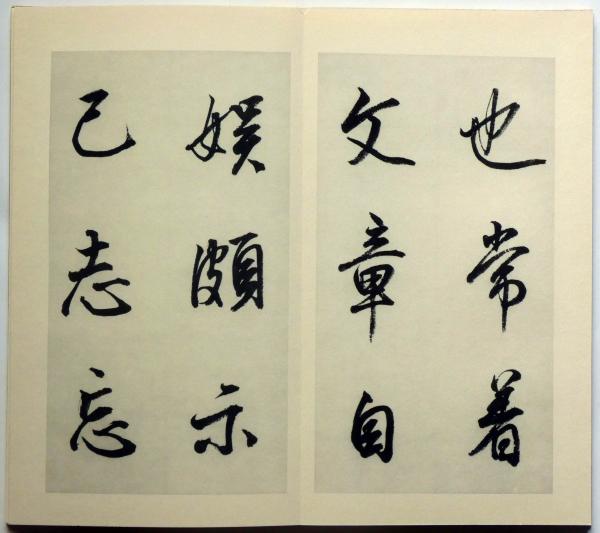 也常着
文章自
娱頗示
己志忘